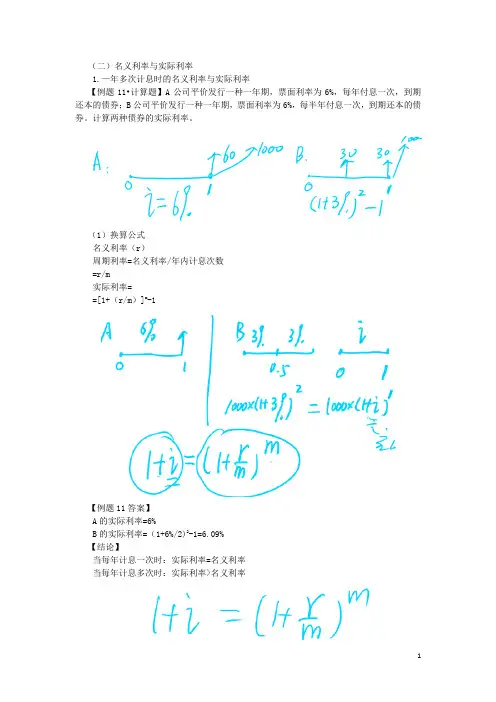 （二）名义利率与实际利率
1.一年多次计息时的名义利率与实际利率
【例题 11•计算题】A 公司平价发行一种一年期，票面利率为 6%，每年付息一次，到期
还本的债券；B 公司平价发行一种一年期，票面利率为 6%，每半年付息一次，到期还本的债
券。计算两种债券的实际利率。
A: 0 1 60 1000
i=6%
B. 0 30 30 1
(1+3%)²-1
（1）换算公式
名义利率（r）
周期利率=名义利率/年内计息次数
=r/m
实际利率=
=[1+（r/m）]ᵐ-1
A 6% 0 1
B 3% 3% 0.5
i 0 1
1000×(1+3%)²=1000×(1+i)¹
1+i=(1+r/m)ᵐ
【例题 11 答案】
A 的实际利率=6%
B 的实际利率=（1+6%/2)²-1=6.09%
【结论】
当每年计息一次时：实际利率=名义利率
当每年计息多次时：实际利率>名义利率
1+i=(1+r/m)ᵐ
1